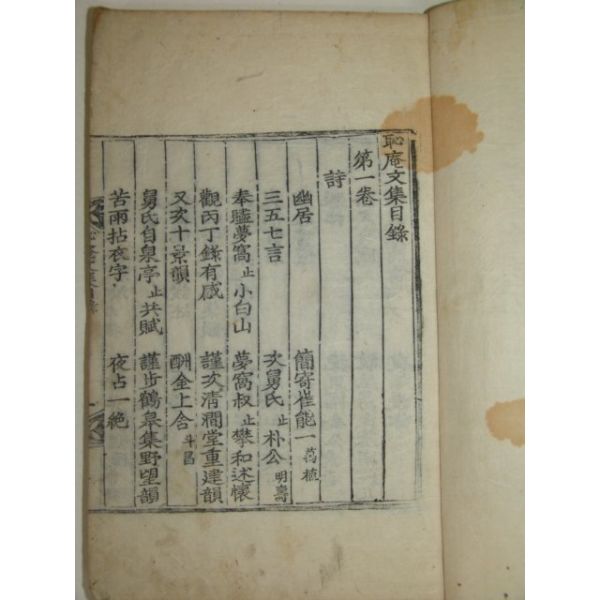 恥庵文集目錄
第一卷
詩
幽居 簡寄崔能一 萬植
三五七言 次舅氏 止 朴公 明壽
奉驢夢窩 止 小白山 夢窩叔 止 攀和述懷
觀丙丁錄有感 謹次淸澗堂重建韻
又次十景韻 酬金上舍 斗昌
舅氏自泉亭 止 共賦 謹步鶴皐集野望韻
苦雨拈衣字 夜占一絶